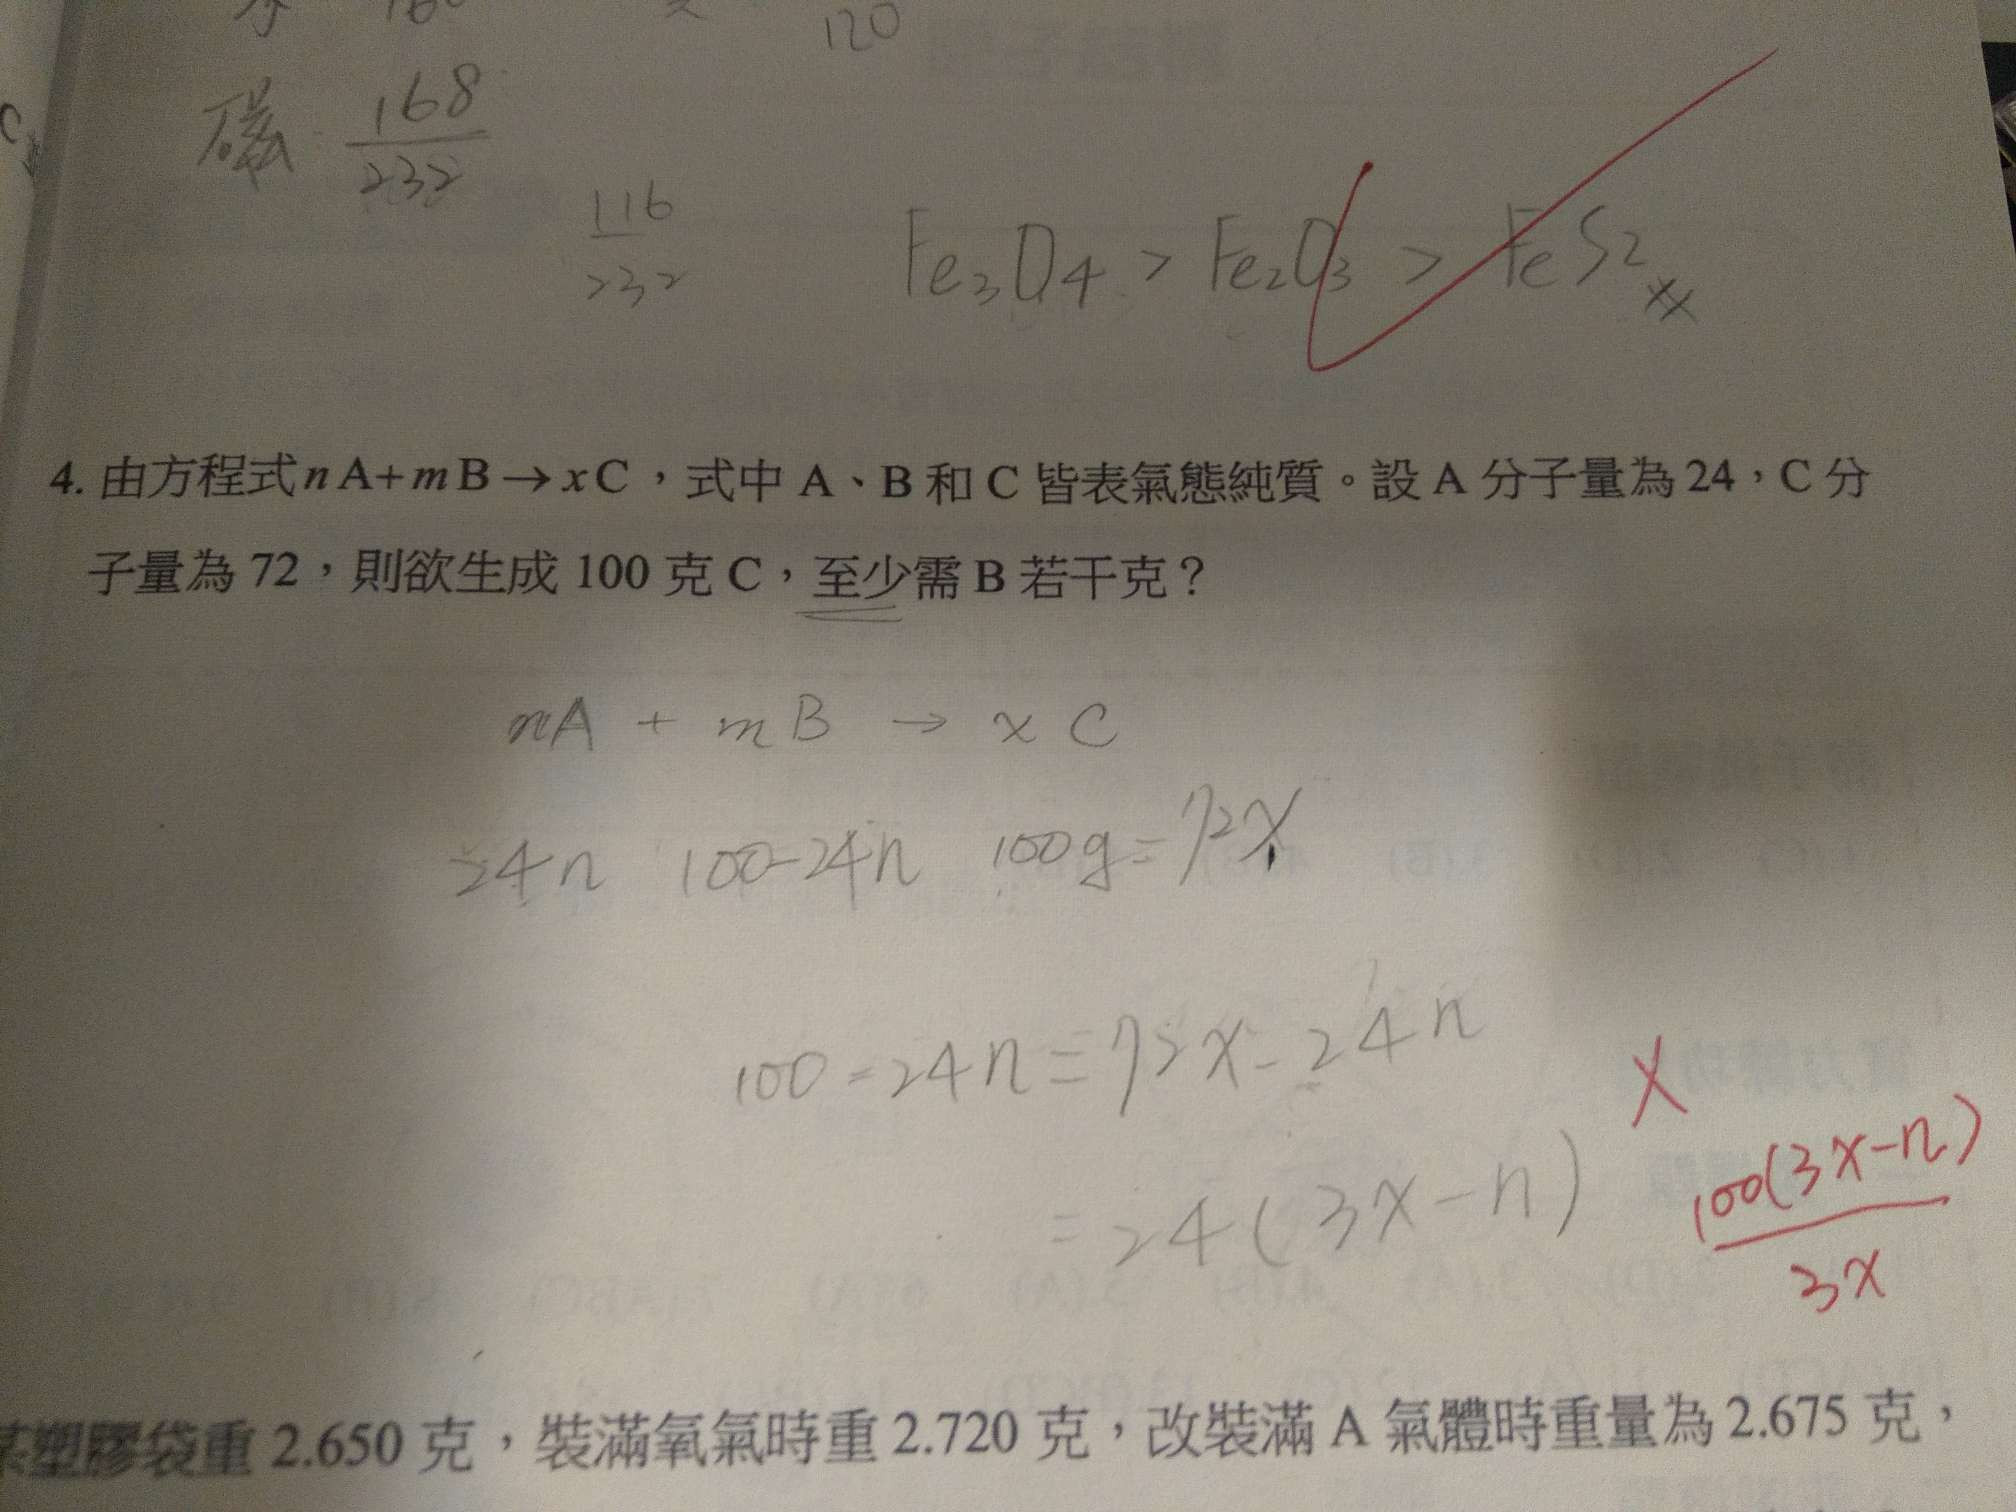 120
磁 168/232
116/232
Fe₃O₄ > Fe₂O₃ > FeS₂
4. 由方程式 n A + m B → x C，式中 A、B 和 C 皆表氣態純質。設 A 分子量為 24，C 分
子量為 72，則欲生成 100 克 C，至少需 B 若干克？
nA + mB → x C
24n 100-24n 100g = 72x
100-24n = 72x-24n
= 24(3x-n)
X
100(3x-n)/3x
塑膠袋重 2.650 克，裝滿氧氣時重 2.720 克，改裝滿 A 氣體時重量為 2.675 克，